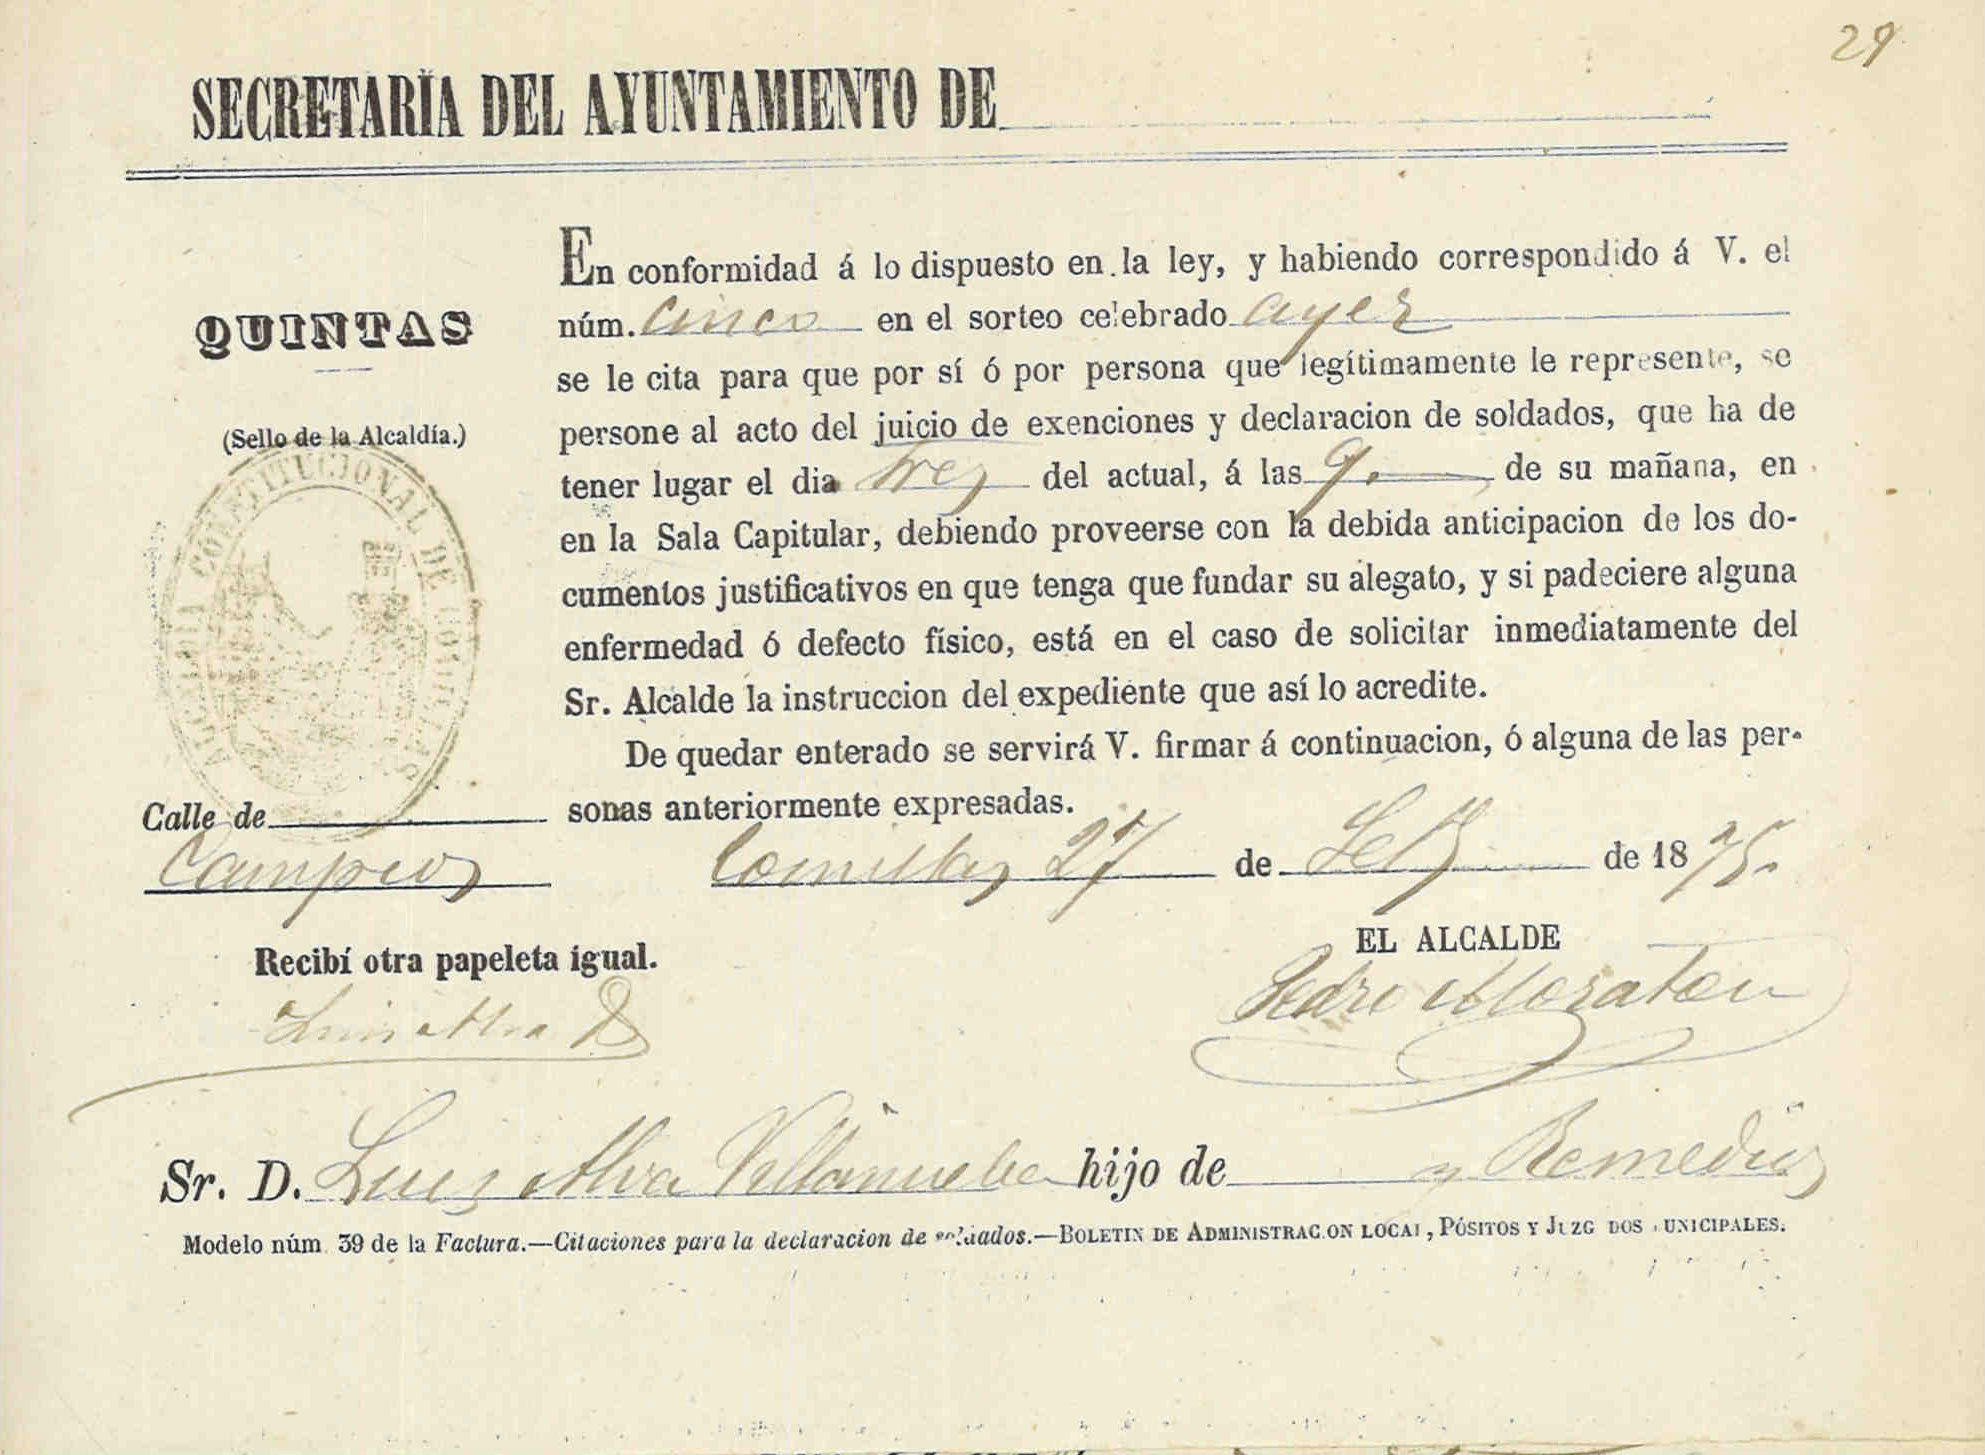 29
SECRETARÍA DEL AYUNTAMIENTO DE
QUINTAS
(Sello de la Alcaldía.)
ALCALDIA CONSTITUCIONAL DE COMILLAS
En conformidad á lo dispuesto en la ley, y habiendo correspondido á V. el
núm. Cinco en el sorteo celebrado ayer
se le cita para que por sí ó por persona que legítimamente le represente, se
persone al acto del juicio de exenciones y declaracion de soldados, que ha de
tener lugar el dia tres del actual, á las 9. de su mañana, en
en la Sala Capitular, debiendo proveerse con la debida anticipacion de los do-
cumentos justificativos en que tenga que fundar su alegato, y si padeciere alguna
enfermedad ó defecto físico, está en el caso de solicitar inmediatamente del
Sr. Alcalde la instruccion del expediente que así lo acredite.
De quedar enterado se servirá V. firmar á continuacion, ó alguna de las per-
sonas anteriormente expresadas.
Calle de
Campios
Comillas 27 de Set. de 1875.
Recibí otra papeleta igual.
Luis Alva
EL ALCALDE
Pedro Moraton
Sr. D. Luis Alva Villanueba hijo de y Remedios
Modelo núm. 39 de la Factura.—Citaciones para la declaracion de soldados.—BOLETIN DE ADMINISTRACION LOCAL, PÓSITOS Y JUZGADOS MUNICIPALES.